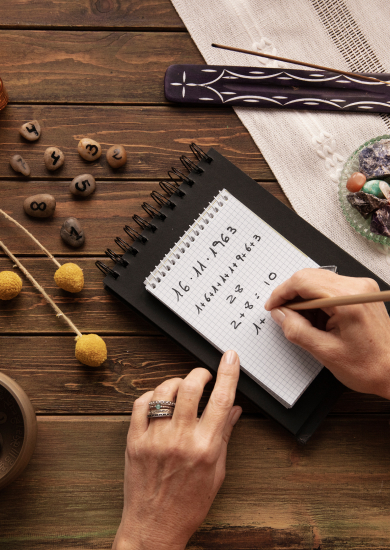 4
3
2
5
8
16.11.1963
1+6+1+1+1+9+6+3
28
2+8=10
1+